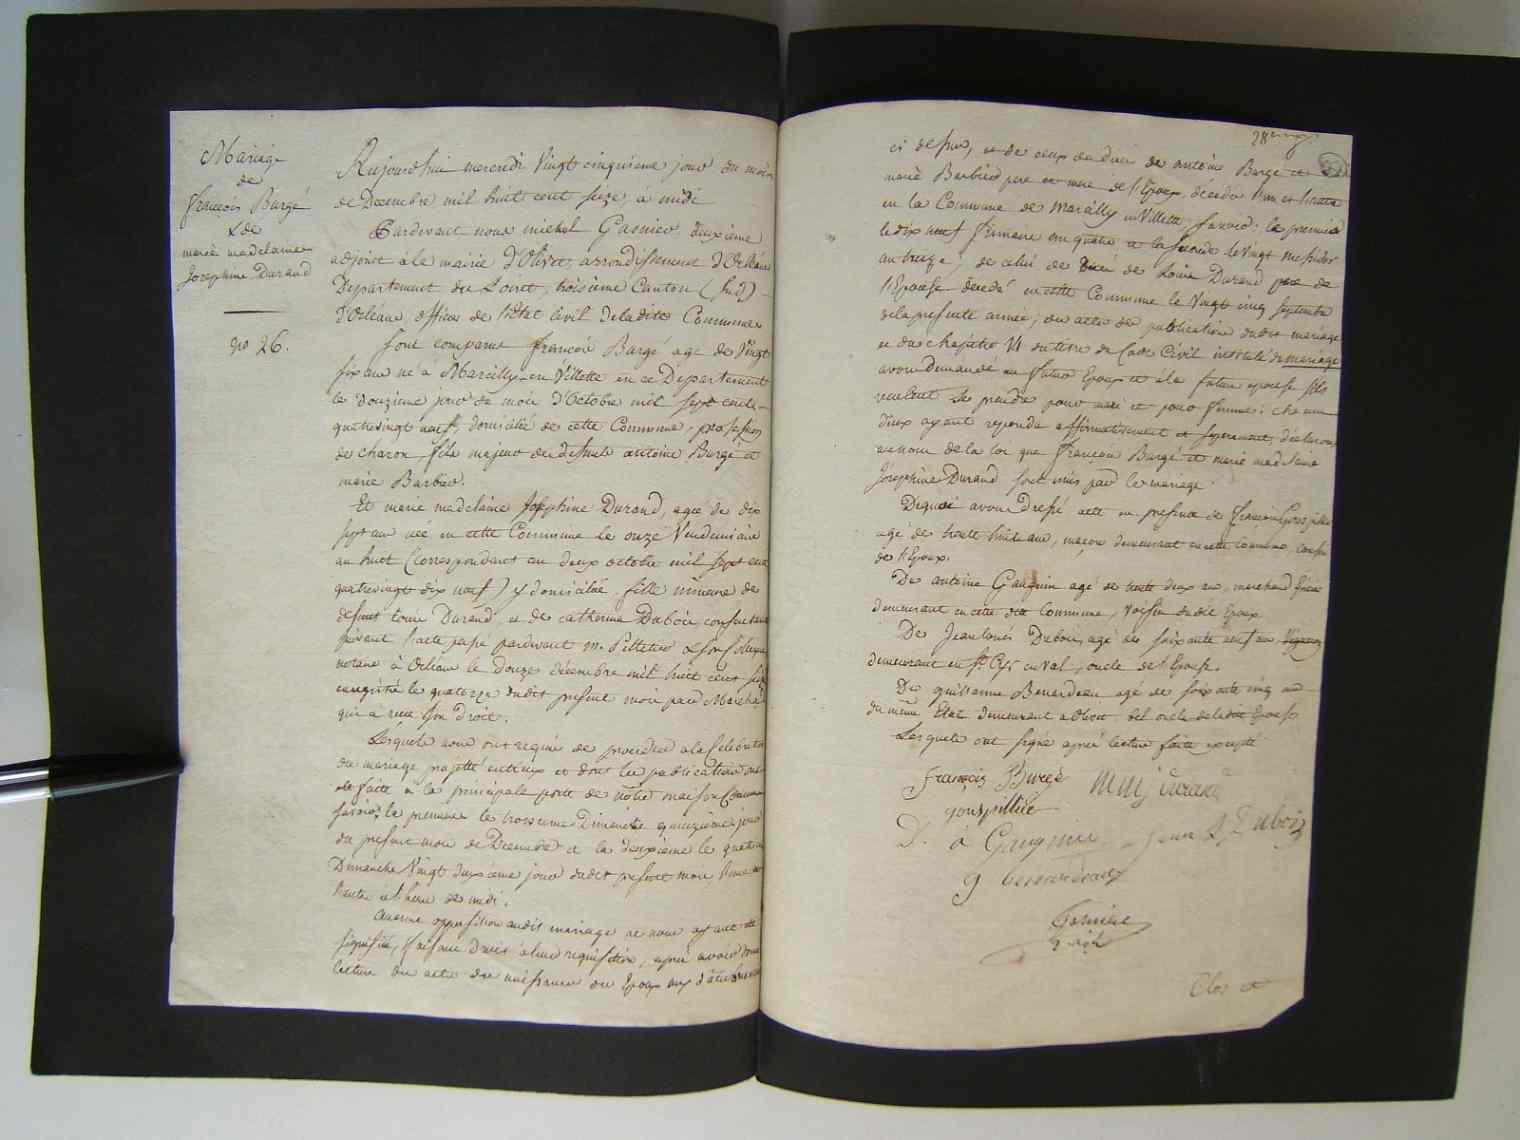 Mariage
de
françois Burgé
& de
marie madelaine
Josephine Durand
no 26.
Aujourdhui mercredi Vingt cinquieme jour du mois
de Decembre mil huit cent seize, à midi
Pardevant nous michel Gasnier deuxieme
adjoint à le mairie d'Olivet, arrondissement d'Orléans
Departement du Loiret, troisieme Canton (Sud)
d'Orléans, officier de l'état Civil de ladite Commune
Sont comparus françois Burgé agé de Vingt
six ans né à Marcilly en Villette en ce Departement
le douzieme jour de mois d'Octobre mil sept cent
quatrevingt neuf, domicilié de cette Commune, profession
de charon, fils majeur de defunts antoine Burgé et
marie Barbier.
Et marie madelaine Josephine Durand, agée de dix
sept ans née en cette Commune le onze Vendemiaire
an huit (Correspondant au deux octobre mil sept cent
quatrevingt dix neuf) y domiciliée, fille mineure de
defunt Louis Durand, et de catherine Dubois, consentante
suivant l'acte passé pardevant m. Pelletier & son Collegue
notaire à Orléans le douze décembre mil huit cent seize
enregistré le quatorze dudit present mois par Maréchal
qui a reçu son Droit.
Lesquels nous ont requis de proceder à la Celebration
du mariage projetté entr'eux et dont les publications ont
été faite à la principale porte de notre maison Commune
Savoir; la premiere le troisieme Dimanche quinzieme jour
du present mois de Decembre et la deuxieme le quatrieme
Dimanche Vingt deuxieme jour dudit present mois,
heure de midi.
Aucune opposition audit mariage ne nous ayant été
signifiée, faisant Droit à leur requisition, après avoir donné
lecture des actes de naissances des Epoux aux dates
28
ci dessus, et de ceux du décès de antoine Burgé et
marie Barbier pere et mere de l'Epoux décédés
en la Commune de Marcilly en Villette, Savoir; le premier
le dix neuf frimaire an quatre et la seconde le vingt messidor
an treize, de celui de décé de Louis Durand pere de
l'Epouse decedé en cette Commune le Vingt cinq septembre
de la presente année; des actes de publication dudit mariage
et du chapitre VI du titre du Code Civil intitulé du mariage
avons demandé au futur Epoux et à la future epouse s'ils
veulent se prendre pour mari et pour femme: chacun
d'eux ayant repondu affirmativement et séparement, déclarons
au nom de la loi que françois Burgé et marie madelaine
Josephine Durand sont unis par le mariage.
Dequoi avons dressé acte en presence de françois Gouspillier
agé de trente huit ans, maçon demeurant en cette Commune, cousin
de l'Epoux.
De antoine Gauguin agé de trente deux ans, marchand
demeurant en cette dite Commune, Voisin dudit Epoux
De Jean Louis Dubois, agé de soixante neuf ans, Vigneron
demeurant en St Cyr en Val, oncle de l'Epouse.
De guillaume Benardeau agé de soixante cinq ans
du même Etat demeurant à Olivet, bel oncle de ladite Epouse
Lesquels ont signé après lecture faite excepté
françois Burgé MMJ durand
gouspillier
D. à Gauguin Jean L Dubois
g benardeau
Gasnier
adj
Clos et